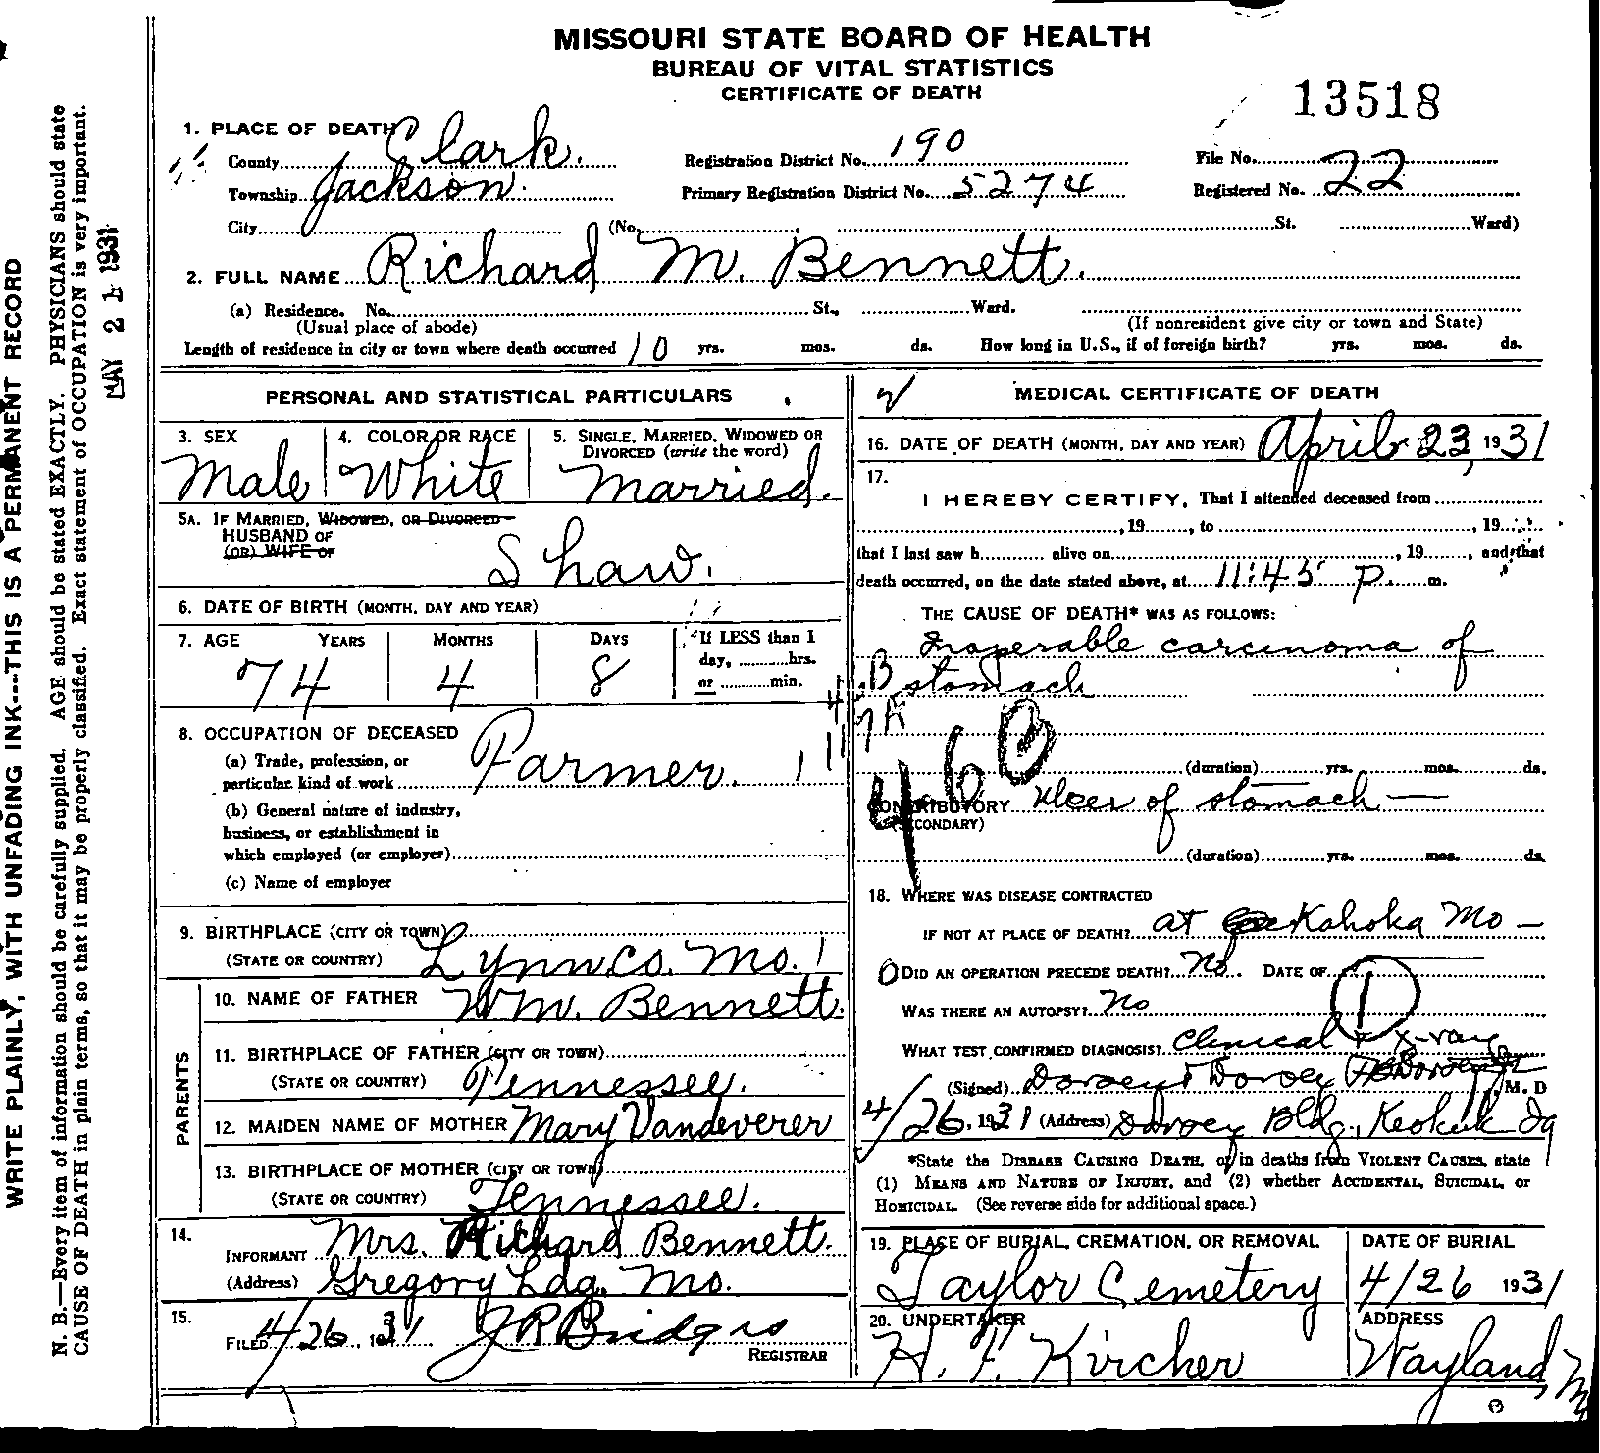 MISSOURI STATE BOARD OF HEALTH
BUREAU OF VITAL STATISTICS
CERTIFICATE OF DEATH
13518
1. PLACE OF DEATH
County Clark. Registration District No. 190 File No. 22
Township Jackson. Primary Registration District No. 5274 Registered No.
City (No. St. Ward)
2. FULL NAME Richard M. Bennett.
(a) Residence. No. St., Ward.
(Usual place of abode) (If nonresident give city or town and State)
Length of residence in city or town where death occurred 10 yrs. mos. ds. How long in U.S., if of foreign birth? yrs. mos. ds.
PERSONAL AND STATISTICAL PARTICULARS
3. SEX 4. COLOR OR RACE 5. SINGLE, MARRIED, WIDOWED OR
DIVORCED (write the word)
Male White Married.
5A. IF MARRIED, WIDOWED, OR DIVORCED
HUSBAND OF
(OR) WIFE OF
Shaw.
6. DATE OF BIRTH (MONTH, DAY AND YEAR)
7. AGE YEARS MONTHS DAYS If LESS than 1
day, hrs.
or min.
74 4 8
8. OCCUPATION OF DECEASED
(a) Trade, profession, or
particular kind of work Farmer.
(b) General nature of industry,
business, or establishment in
which employed (or employer)
(c) Name of employer
9. BIRTHPLACE (CITY OR TOWN)
(STATE OR COUNTRY) Lynn Co. Mo.
PARENTS
10. NAME OF FATHER Wm. Bennett.
11. BIRTHPLACE OF FATHER (CITY OR TOWN)
(STATE OR COUNTRY) Tennessee.
12. MAIDEN NAME OF MOTHER Mary Vandeverer
13. BIRTHPLACE OF MOTHER (CITY OR TOWN)
(STATE OR COUNTRY) Tennessee.
14.
INFORMANT Mrs. Richard Bennett.
(Address) Gregory Ldg. Mo.
15.
FILED 4/26, 1931 J R Bridges
REGISTRAR
MEDICAL CERTIFICATE OF DEATH
16. DATE OF DEATH (MONTH, DAY AND YEAR) April 23, 1931
17.
I HEREBY CERTIFY, That I attended deceased from
, 19 , to , 19
that I last saw h alive on , 19 , and that
death occurred, on the date stated above, at 11:45 P. m.
THE CAUSE OF DEATH* WAS AS FOLLOWS:
Inoperable carcinoma of
stomach
46B
(duration) yrs. mos. ds.
CONTRIBUTORY Ulcer of stomach —
(SECONDARY)
(duration) yrs. mos. ds.
18. WHERE WAS DISEASE CONTRACTED
IF NOT AT PLACE OF DEATH? at Kahoka Mo —
DID AN OPERATION PRECEDE DEATH? No DATE OF
WAS THERE AN AUTOPSY? No
WHAT TEST CONFIRMED DIAGNOSIS? Clinical + X-ray
(Signed) Dorsey & Dorsey M. D
4/26, 1931 (Address) Dorsey Bldg., Keokuk Ia
*State the DISEASE CAUSING DEATH, or in deaths from VIOLENT CAUSES, state
(1) MEANS AND NATURE OF INJURY, and (2) whether ACCIDENTAL, SUICIDAL, or
HOMICIDAL. (See reverse side for additional space.)
19. PLACE OF BURIAL, CREMATION, OR REMOVAL DATE OF BURIAL
Taylor Cemetery 4/26 1931
20. UNDERTAKER ADDRESS
H. F. Kircher Wayland
WRITE PLAINLY, WITH UNFADING INK---THIS IS A PERMANENT RECORD
N. B.—Every item of information should be carefully supplied. AGE should be stated EXACTLY. PHYSICIANS should state
CAUSE OF DEATH in plain terms, so that it may be properly classified. Exact statement of OCCUPATION is very important.
MAY 21 1931